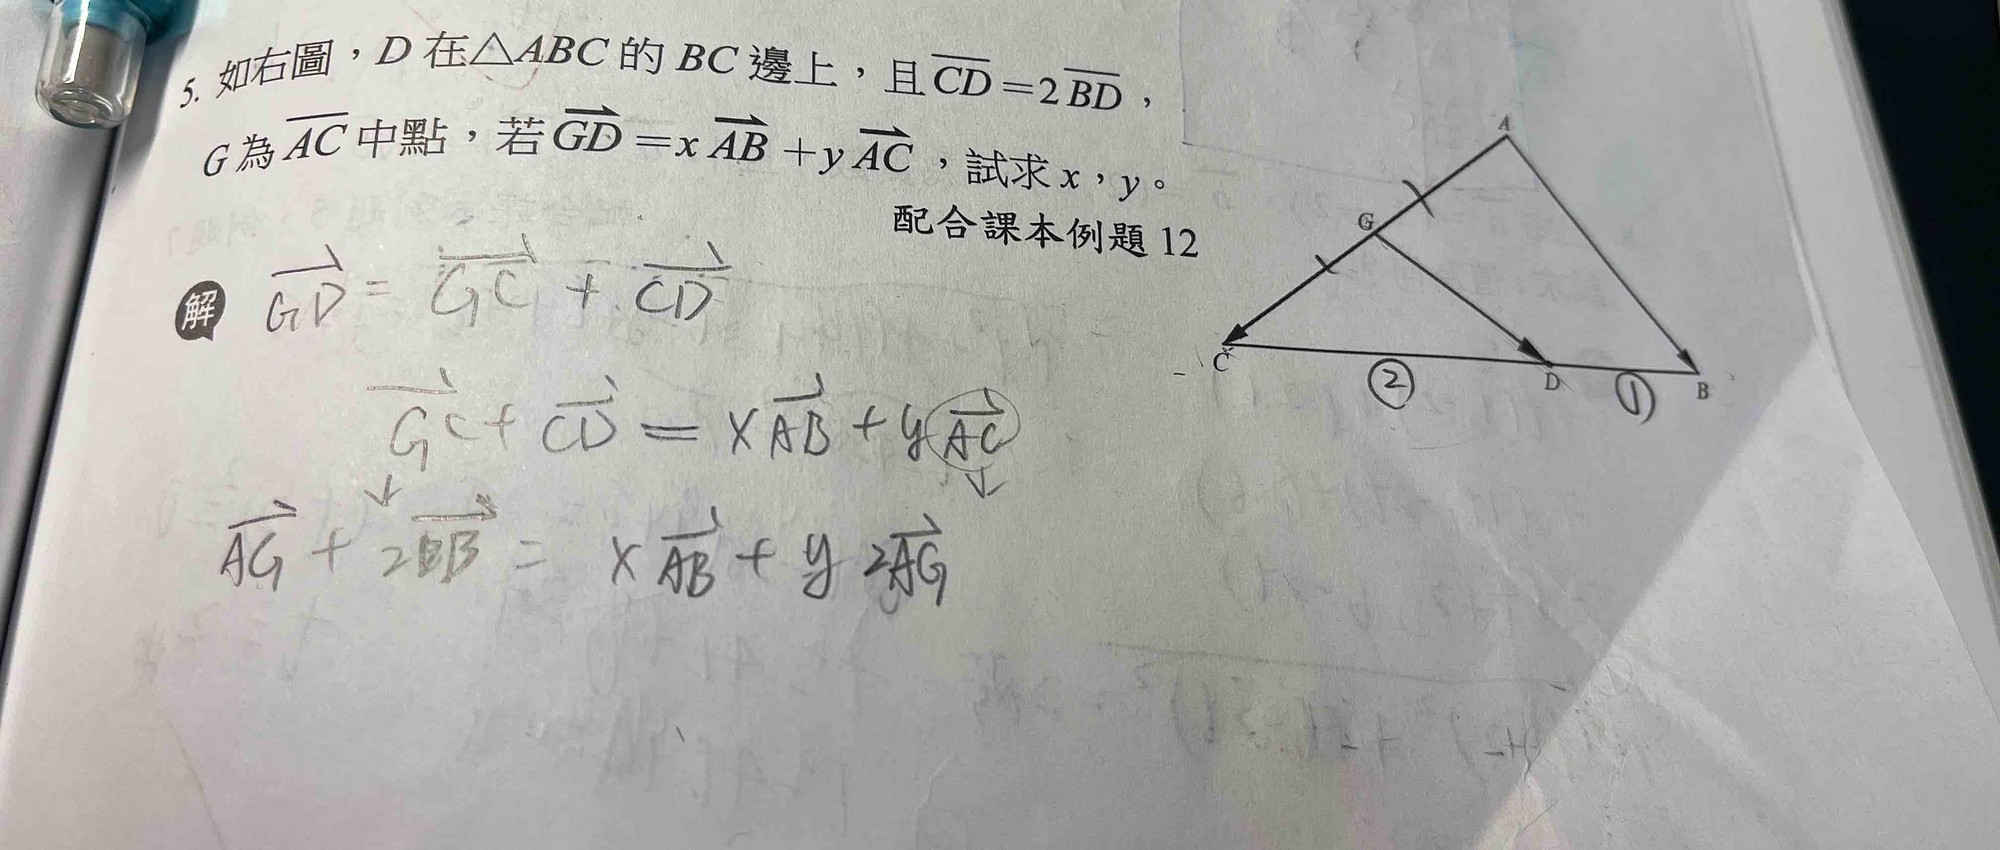 5. 如右圖，D 在△ABC 的 BC 邊上，且 \overline{CD}=2\overline{BD}，
G 為 \overline{AC} 中點，若 \overrightarrow{GD}=x\overrightarrow{AB}+y\overrightarrow{AC}，試求 x，y。
配合課本例題 12
解 \overrightarrow{GD} = \overrightarrow{GC} + \overrightarrow{CD}
\overrightarrow{GC} + \overrightarrow{CD} = x\overrightarrow{AB} + y\overrightarrow{AC}
\overrightarrow{AG} + 2\overrightarrow{DB} = x\overrightarrow{AB} + y 2\overrightarrow{AG}
A
G
C
D
B
② ①